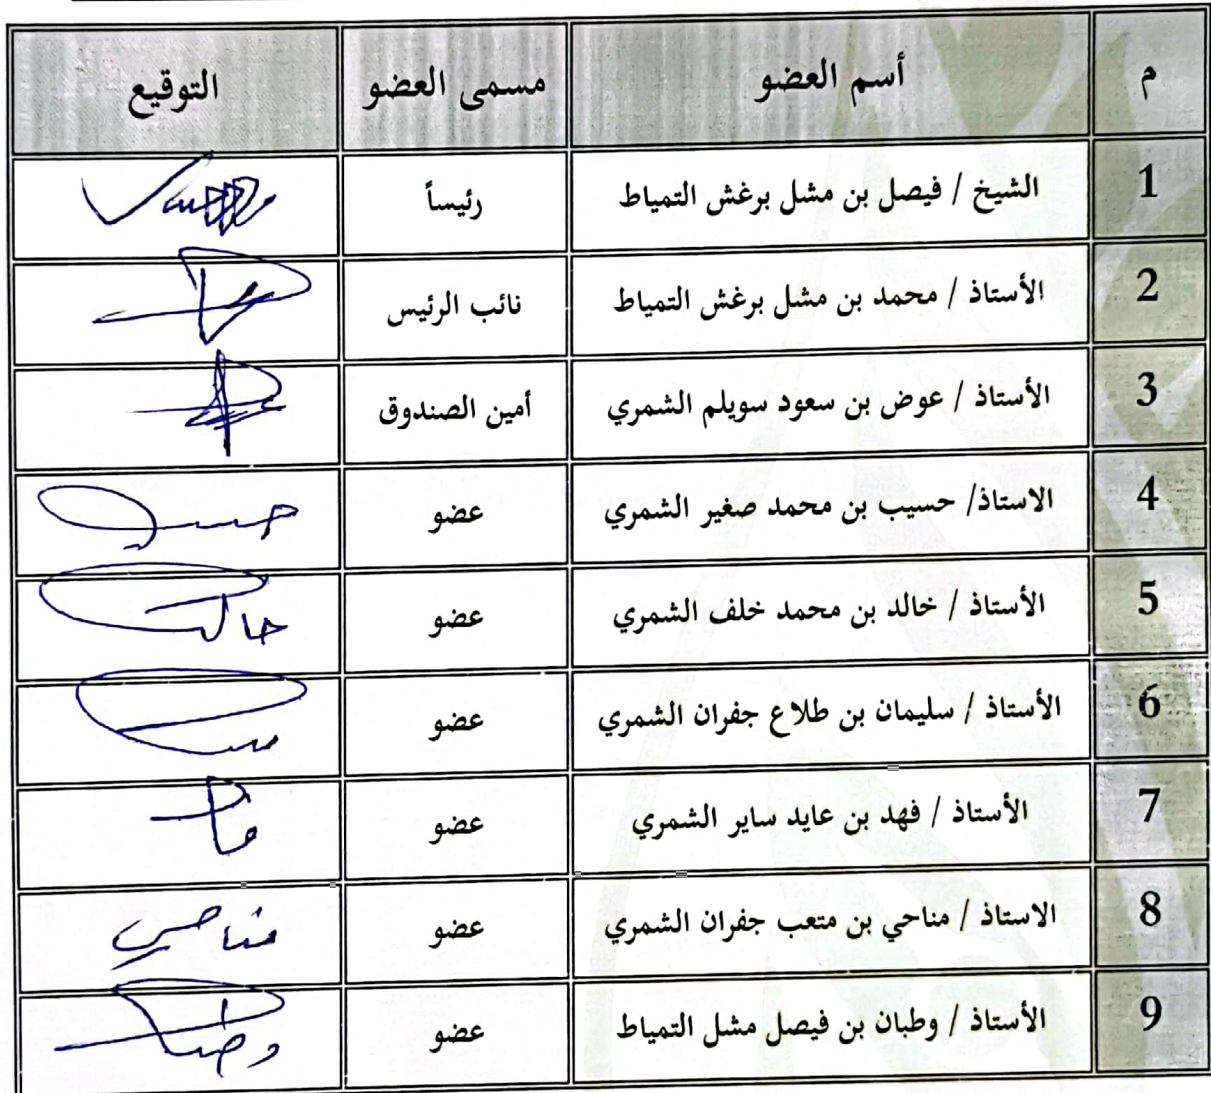 م أسم العضو مسمى العضو التوقيع
1 الشيخ / فيصل بن مشل برغش التمياط رئيساً
2 الأستاذ / محمد بن مشل برغش التمياط نائب الرئيس
3 الأستاذ / عوض بن سعود سويلم الشمري أمين الصندوق
4 الاستاذ/ حسيب بن محمد صغير الشمري عضو
5 الأستاذ / خالد بن محمد خلف الشمري عضو
6 الأستاذ / سليمان بن طلاع جفران الشمري عضو
7 الأستاذ / فهد بن عايد ساير الشمري عضو
8 الاستاذ / مناحي بن متعب جفران الشمري عضو مناحي
9 الأستاذ / وطبان بن فيصل مشل التمياط عضو